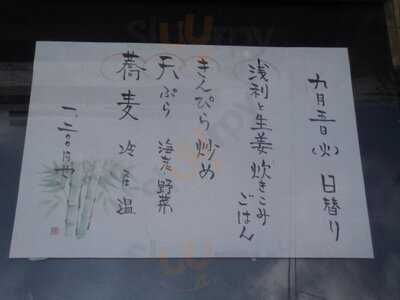 九月 日(火) 日替り
浅利と生姜炊きこみ
ごはん
きんぴら炒め
天ぷら 海老 野菜
蕎麦 冷 温